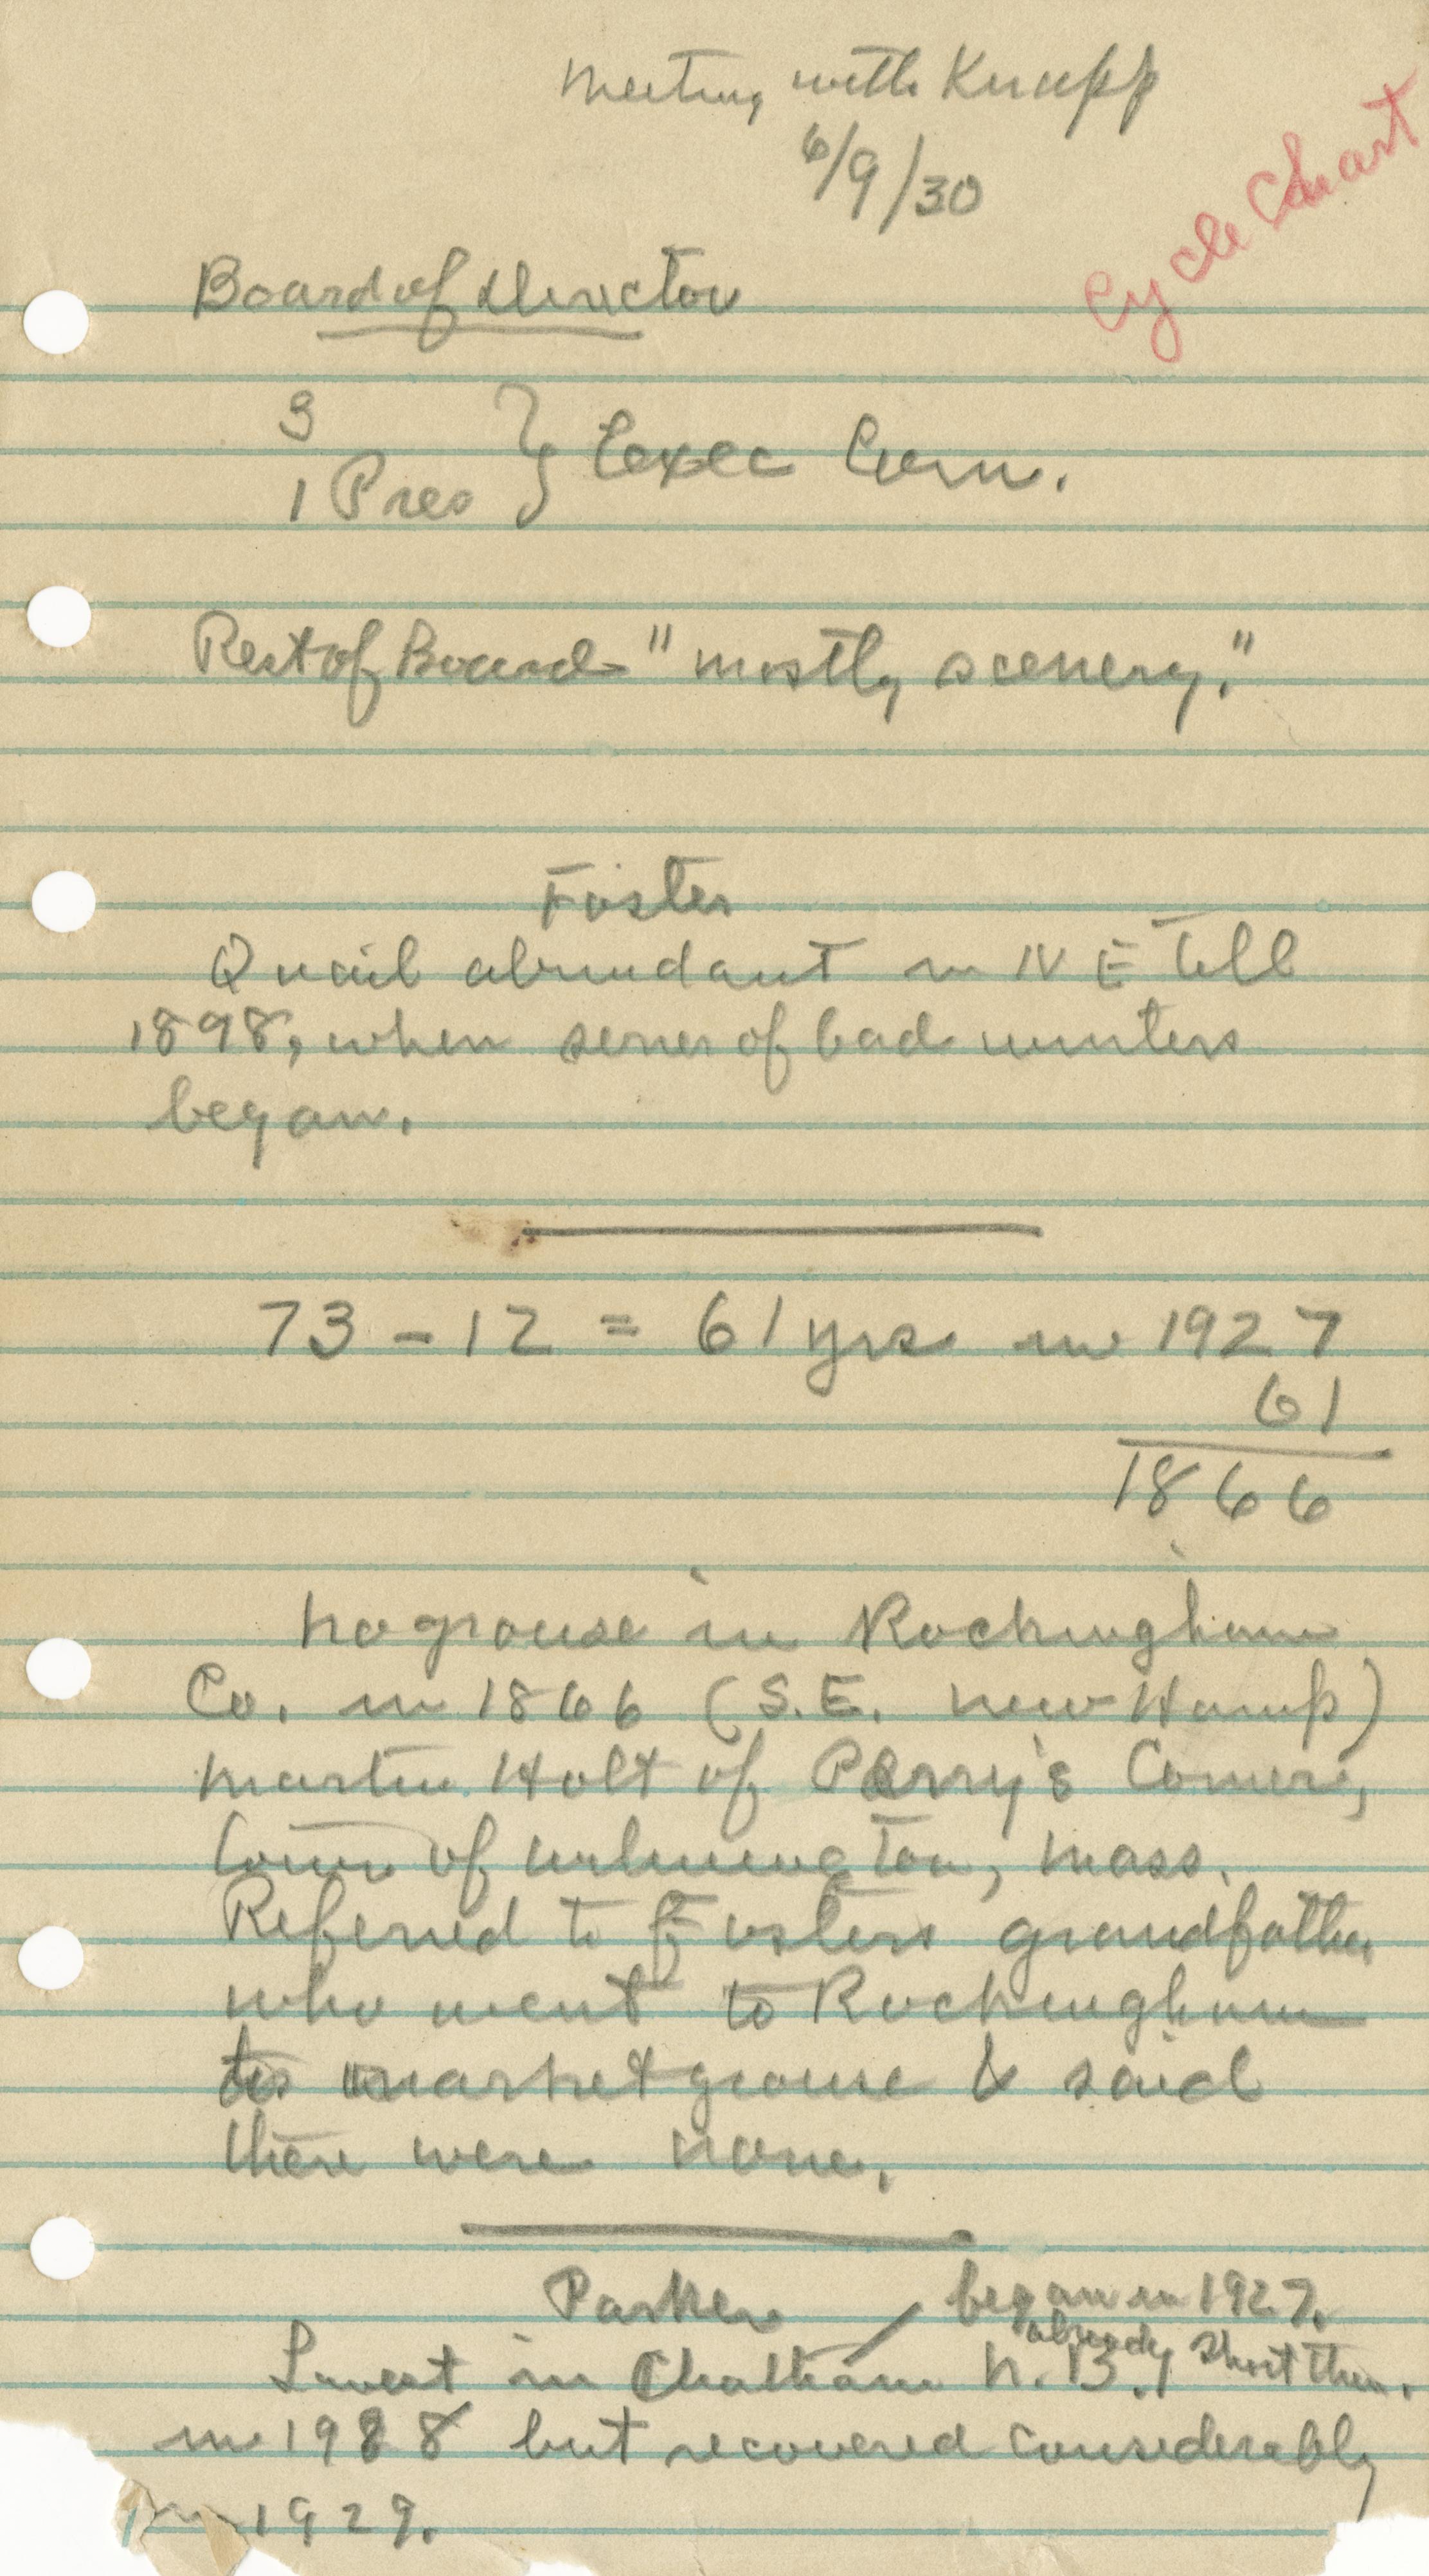 Meeting with Knapp
6/9/30
Cycle Chart
Board of Director
3
1 Pres } Exec Com.
Rest of Board "mostly scenery."
Foster
Quail abundant in NE till
1898, when series of bad winters
began.
73 - 12 = 61 yrs in 1927
61
1866
No grouse in Rockingham
Co. in 1866 (S.E. New Hamp)
Martin Holt of Perry's Corners,
town of Wilmington, Mass.
Referred to Fosters grandfather
who went to Rockingham
to market grouse & said
there were none.
Parker / began in 1927.
already short then.
Lowest in Chatham N.B.
in 1928 but recovered considerably
in 1929.